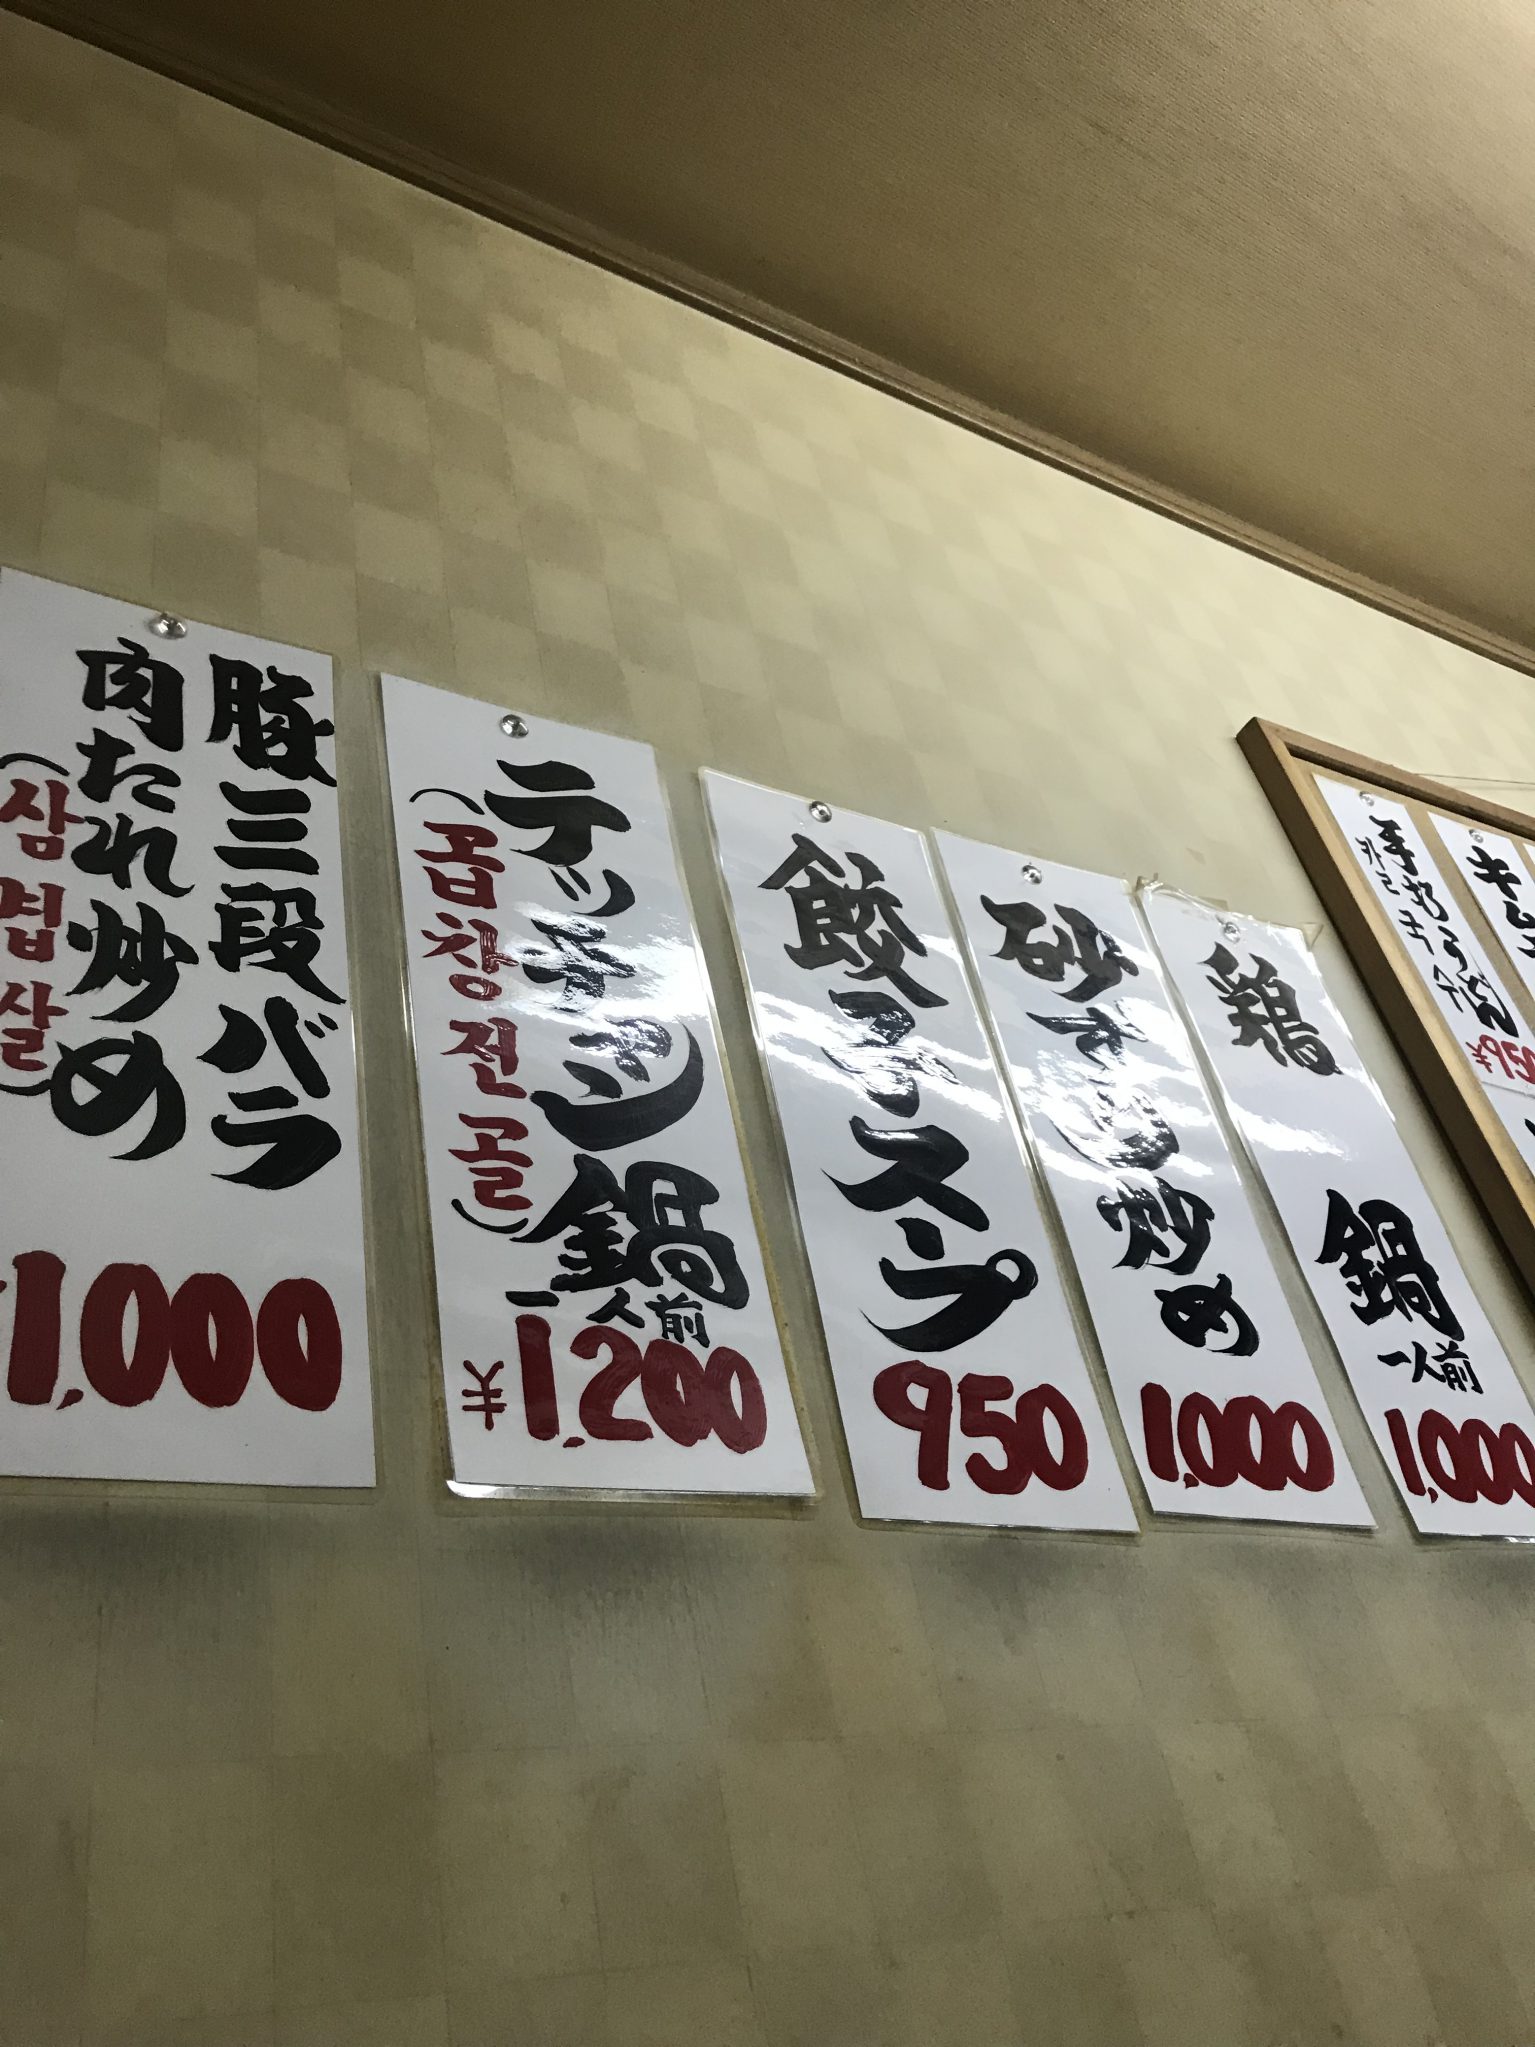 豚三段バラ
肉たれ炒め
(삼겹살)
1,000
テッチャン鍋
(곱창전골)
一人前
¥1,200
餃子スープ
950
砂ずり炒め
1,000
鶏 鍋
一人前
1,000
手打うどん
카르국수